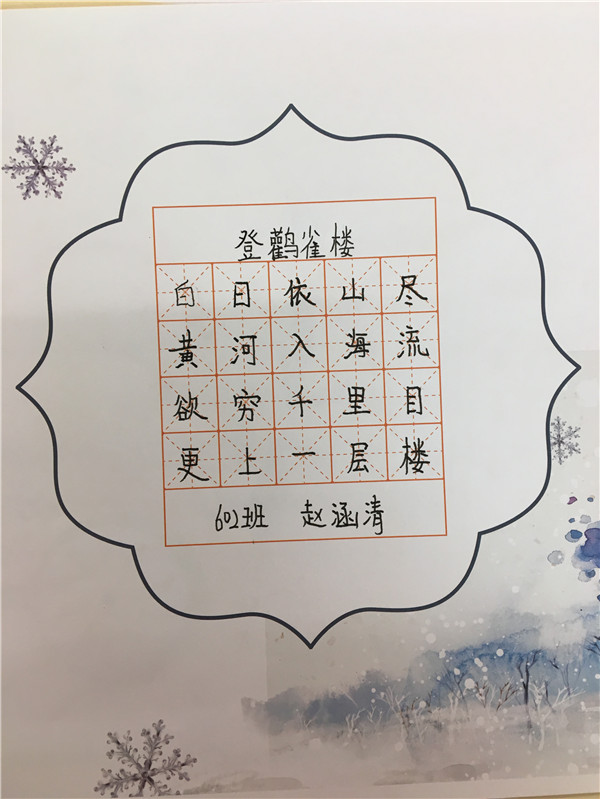 登鹳雀楼
白日依山尽
黄河入海流
欲穷千里目
更上一层楼
602班 赵涵清